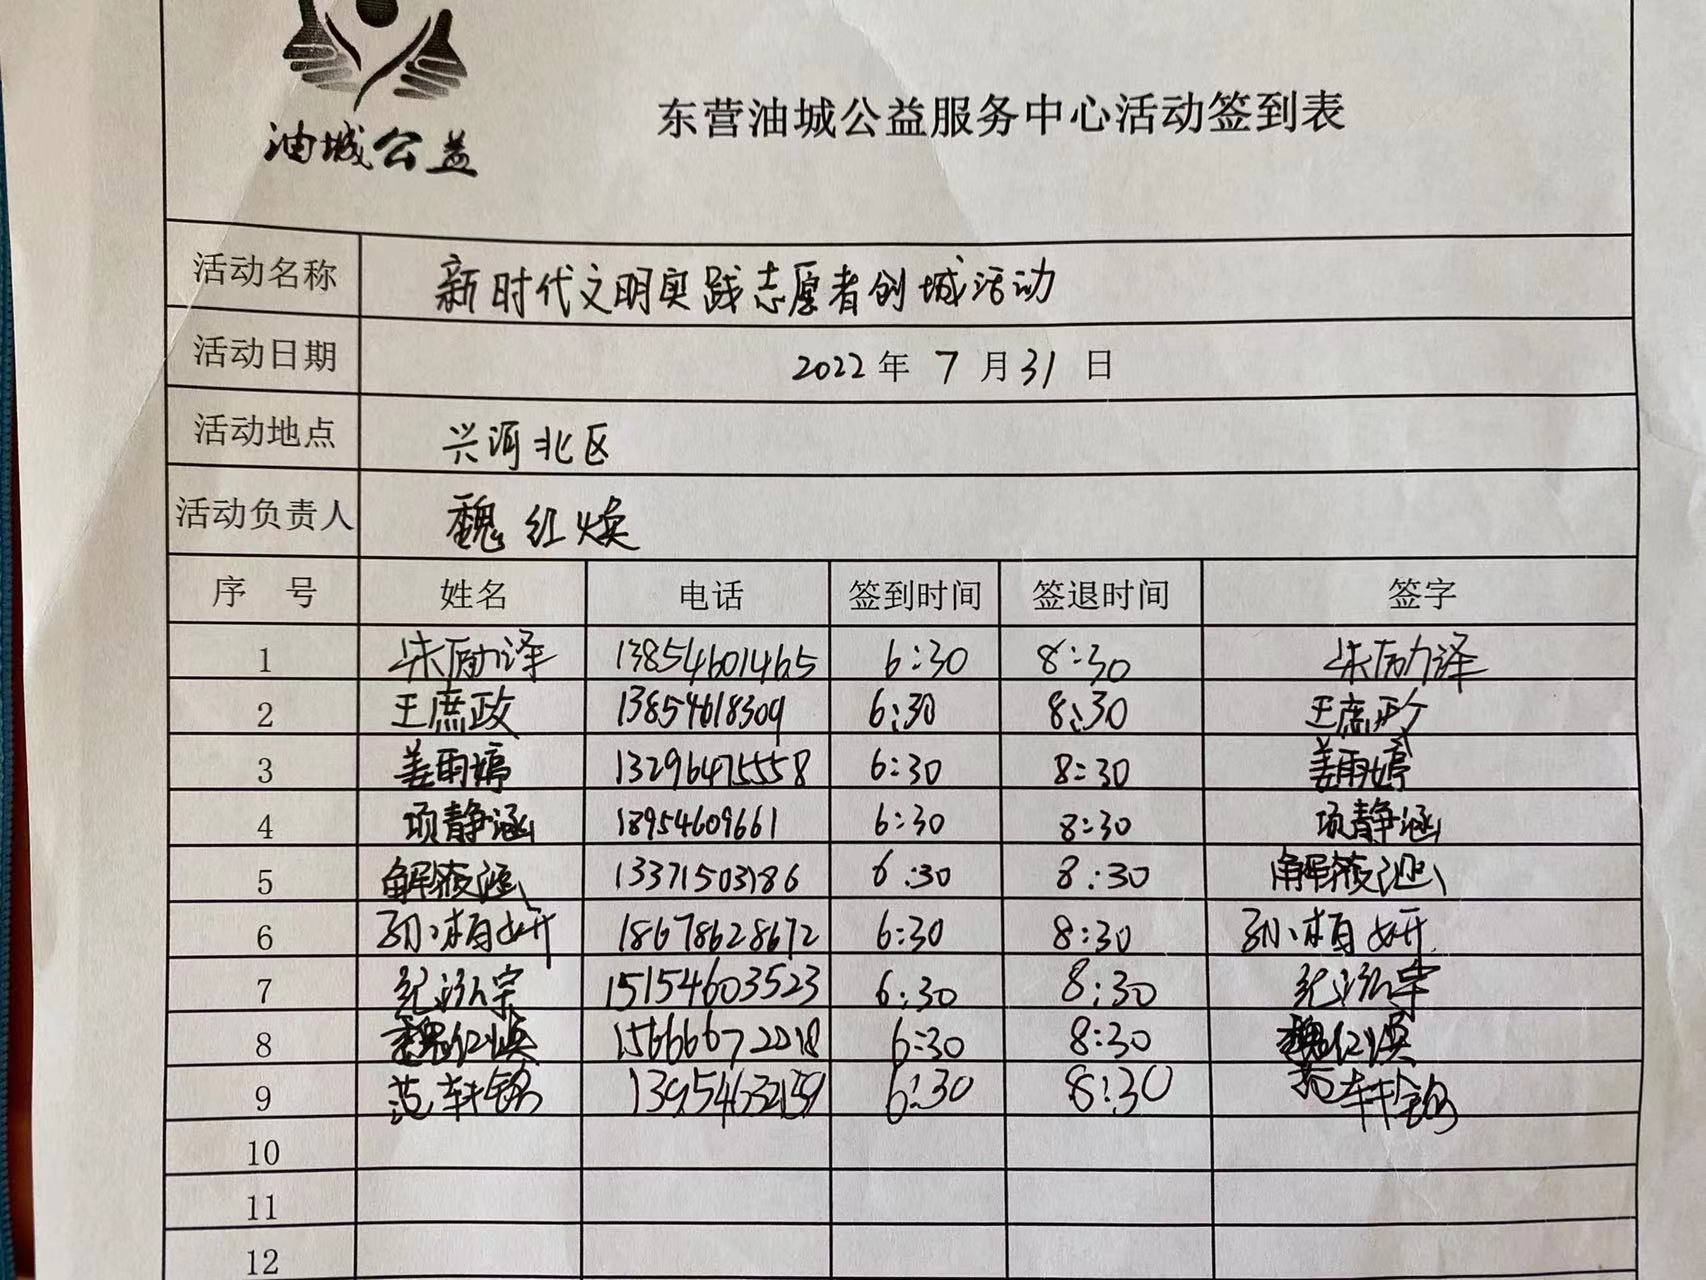 油城公益
东营油城公益服务中心活动签到表
活动名称 新时代文明实践志愿者创城活动
活动日期 2022年 7 月31 日
活动地点 兴河北区
活动负责人 魏红焕
序 号 姓名 电话 签到时间 签退时间 签字
1 朱励泽 13854601465 6:30 8:30 朱励泽
2 王庶政 13854618309 6:30 8:30 王庶政
3 姜雨婷 13296475558 6:30 8:30 姜雨婷
4 项静涵 18954609661 6:30 8:30 项静涵
5 解液涵 13371503186 6:30 8:30
6 孙小楠妍 18678628672 6:30 8:30
7 纪泓宗 15154603523 6:30 8:30 纪泓宗
8 魏红焕 15666672218 6:30 8:30 魏红焕
9 范轩铭 6:30 8:30 范轩铭
10
11
12